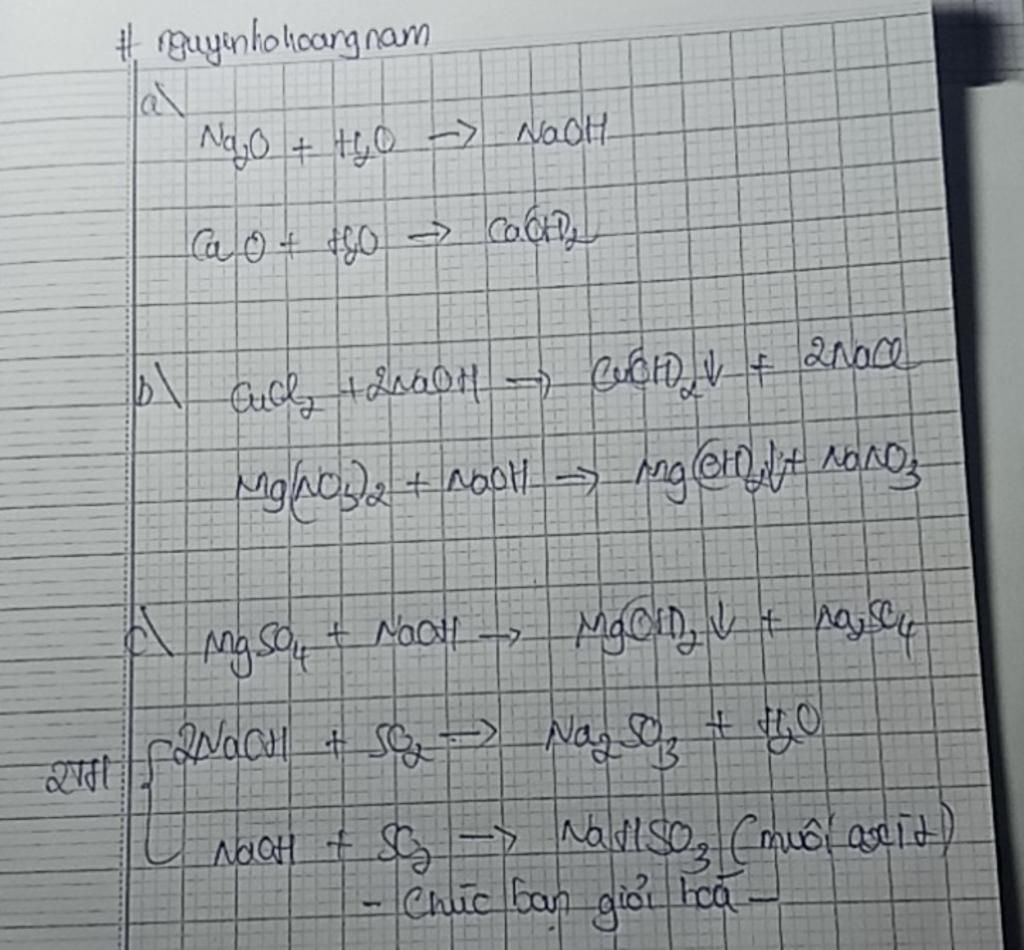 # nguyenhohoangnam
a\
Na₂O + H₂O → NaOH
CaO + H₂O → Ca(OH)₂
b\ CuCl₂ + 2NaOH → Cu(OH)₂↓ + 2NaCl
Mg(NO₃)₂ + NaOH → Mg(OH)₂↓ + NaNO₃
c\ MgSO₄ + NaOH → Mg(OH)₂↓ + Na₂SO₄
2NaOH + SO₂ → Na₂SO₃ + H₂O
NaOH + SO₂ → NaHSO₃ (muối axit)
- Chúc bạn giỏi hoá -